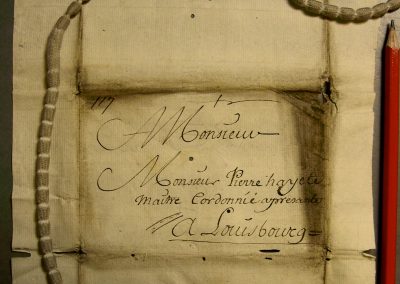 117
A Monsieur
Monsieur Pierre hayet
Maitre Cordonnié apresente
A Louisbourg